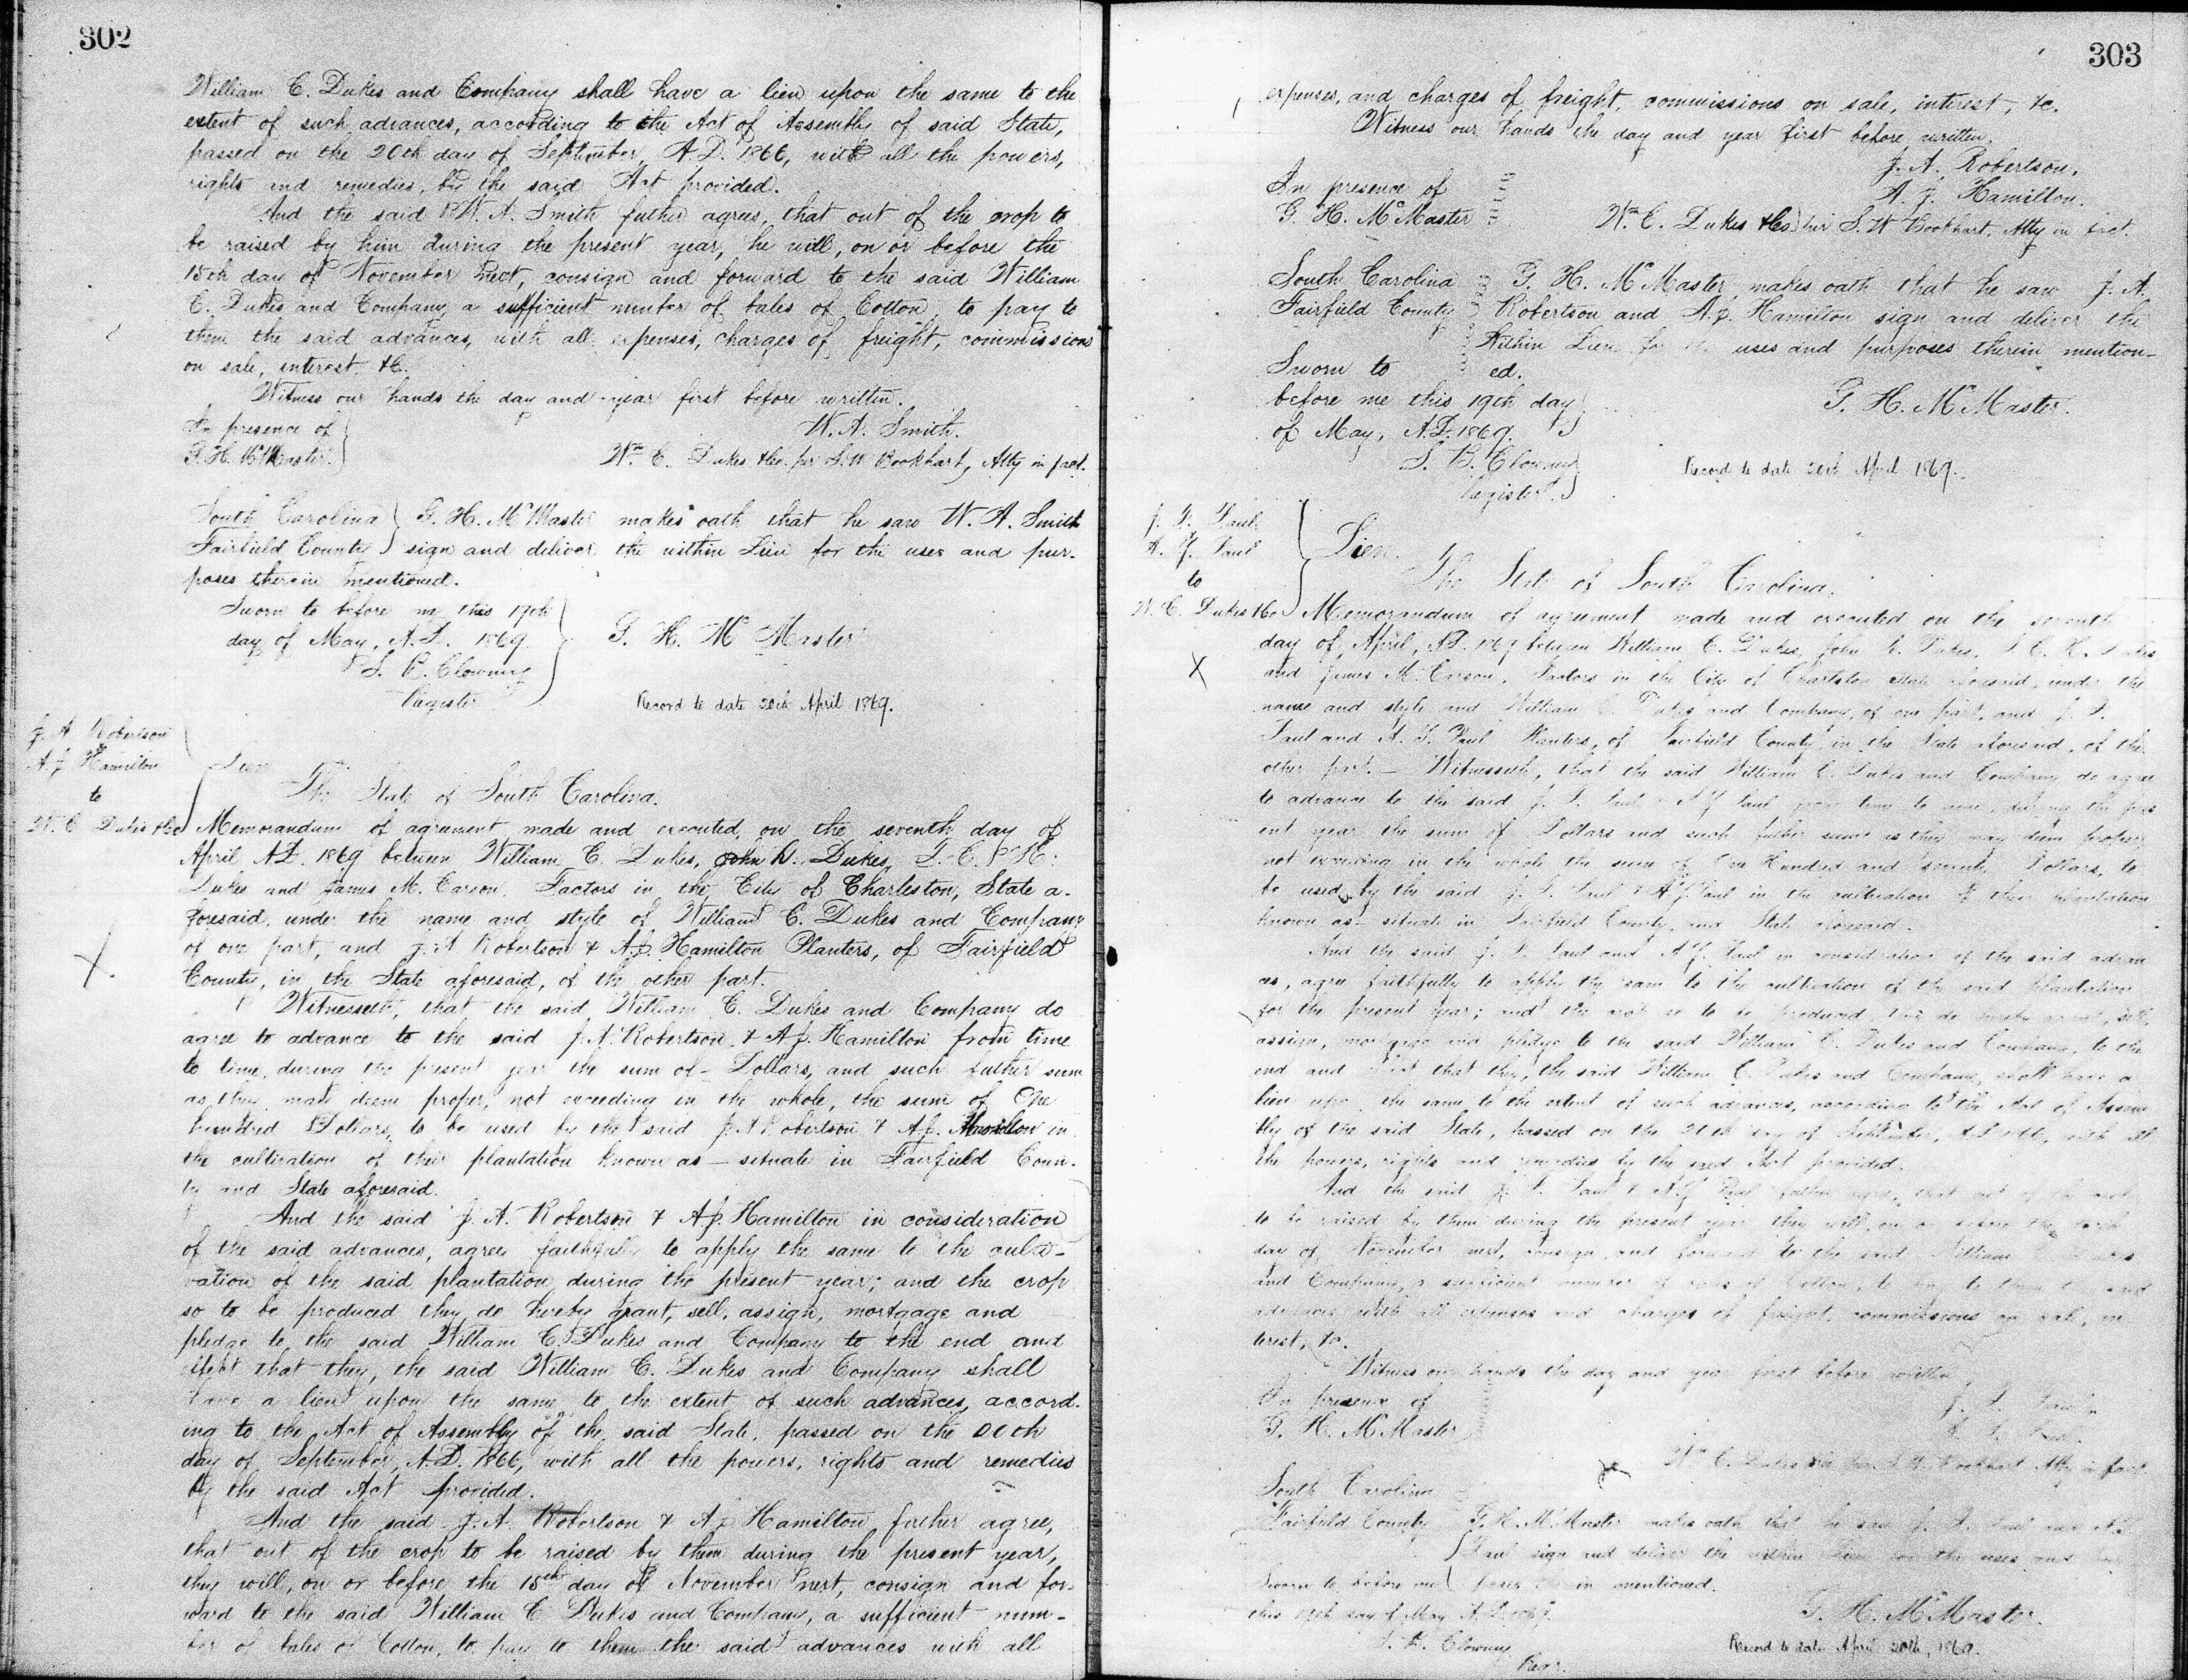 302
William C. Dukes and Company shall have a lien upon the same to the
extent of such advances, according to the Act of Assembly of said State,
passed on the 20th day of September, A.D. 1866, with all the powers,
rights and remedies, by the said Act provided.
And the said W. A. Smith futher agrees, that out of the crop to
be raised by him during the present year, he will, on or before the
15th day of November next, consign and forward to the said William
C. Dukes and Company a sufficient number of bales of Cotton, to pay to
them the said advances, with all expenses, charges of freight, commissions
on sale, interest &c.
Witness our hands the day and year first before written.
In presence of
W. A. Smith.
G. H. McMaster.
Wm C. Dukes &Co. per S. W Bookhart, Atty in fact.
South Carolina } G. H. McMaster makes oath that he saw W. A. Smith
Fairfield County } sign and deliver the within Lien for the uses and pur-
poses therein mentioned.
Sworn to before me this 19th
day of May, A.D. 1869
G. H. McMaster
S. B. Clowney
Register
Record to date 20th April 1869.
J. A Robertson
A. J Hamilton
to
W. C Dukes &Co
Lien
The State of South Carolina.
Memorandum of agreement made and executed, on the seventh day of
April A.D. 1869 between William C. Dukes, John D. Dukes, T. C. H.
Dukes and James M. Carson, Factors in the City of Charleston, State a-
foresaid, under the name and style of William C. Dukes and Company
of one part, and J. A Robertson & A. J. Hamilton Planters, of Fairfield
County, in the State aforesaid, of the other part.
Witnesseth, that the said William C. Dukes and Company do
agree to advance to the said J. A. Robertson & A J. Hamilton from time
to time, during the present year the sum of – Dollars, and such futher sum
as they may deem proper, not exceeding in the whole, the sum of One
hundred Dollars, to be used by the said J. A Robertson & A. J. Hamilton in
the cultivation of their plantation known as – situate in Fairfield Coun-
ty and State aforesaid.
And the said J. A. Robertson & A J. Hamilton in consideration
of the said advances, agree faithfully to apply the same to the culti-
vation of the said plantation during the present year; and the crop
so to be produced they do hereby grant, sell, assign, mortgage and
pledge to the said William C. Dukes and Company to the end and
that they, the said William C. Dukes and Company shall
have a lien upon the same to the extent of such advances, accord-
ing to the Act of Assembly of the said State, passed on the 20th
day of September, A.D. 1866, with all the powers, rights and remedies
by the said Act provided.
And the said J. A. Robertson & A J Hamilton futher agree,
that out of the crop to be raised by them during the present year,
they will, on or before the 15th day of November next, consign and for-
ward to the said William C Dukes and Company, a sufficient num-
ber of bales of Cotton, to pay to them the said advances with all
303
expenses, and charges of freight, commissions on sale, interest, &c.
Witness our hands the day and year first before written.
J. A. Robertson.
In presence of
A. J. Hamilton.
G. H. McMaster
Wm C. Dukes &Co per S. W Bookhart. Atty in fact.
South Carolina G. H. McMaster makes oath that he saw J. A.
Fairfield County Robertson and A. J. Hamilton sign and deliver the
Within Lien for the uses and purposes therein mention-
Sworn to ed.
before me this 19th day
G. H. McMaster.
of May, A.D. 1869.
S. B. Clowney
Register.
Record to date 20th April 1869.
to
W. C. Dukes &Co
Lien.
The State of South Carolina.
Memorandum of agreement made and executed on the seventh
day of April, A.D. 1869 between William C. Dukes, John D. Dukes, T. C. H. Dukes
and James M. Carson, Factors in the City of Charleston State aforesaid, under the
name and style and William C. Dukes and Company, of one part, and
Planters, of Fairfield County in the State aforesaid, of the
other part. – Witnesseth, that the said William C. Dukes and Company do agree
to advance to the said from time to time, during the pres
ent year the sum of Dollars and such futher sums as they may deem proper,
not exceeding in the whole the sum of One Hundred and Dollars, to
be used by the said in the cultivation of their plantation
known as – situate in Fairfield County, and State aforesaid.
And the said in consideration of the said advan
ces, agree faithfully to apply the same to the cultivation of the said plantation
for the present year; and the crop so to be produced, they do hereby grant, sell,
assign, mortgage and pledge to the said William C. Dukes and Company, to the
end and that they, the said William C. Dukes and Company, shall have a
lien upon the same to the extent of such advances, according to the Act of Assem
bly of the said State, passed on the 20th day of September, A.D. 1866, with all
the powers, rights and remedies by the said Act provided.
And the said futher agree, that out of the crop
to be raised by them during the present year they will, on or before the
day of November next, consign and forward to the said William C. Dukes
and Company, a sufficient number of bales of Cotton, to pay to them the said
advances with all expenses and charges of freight, commissions on sale, in
terest, &c.
Witness our hands the day and year first before written
In presence of
G. H. McMaster
Wm C. Dukes &Co per S. W. Bookhart Atty in fact.
South Carolina
Fairfield County G. H. McMaster makes oath that he saw
sign and deliver the within Lien for the uses and
Sworn to before me poses therein mentioned.
this 19th day of May A.D. 1869.
G. H. McMaster.
S. B. Clowney
Regr.
Record to date April 20th, 1869.